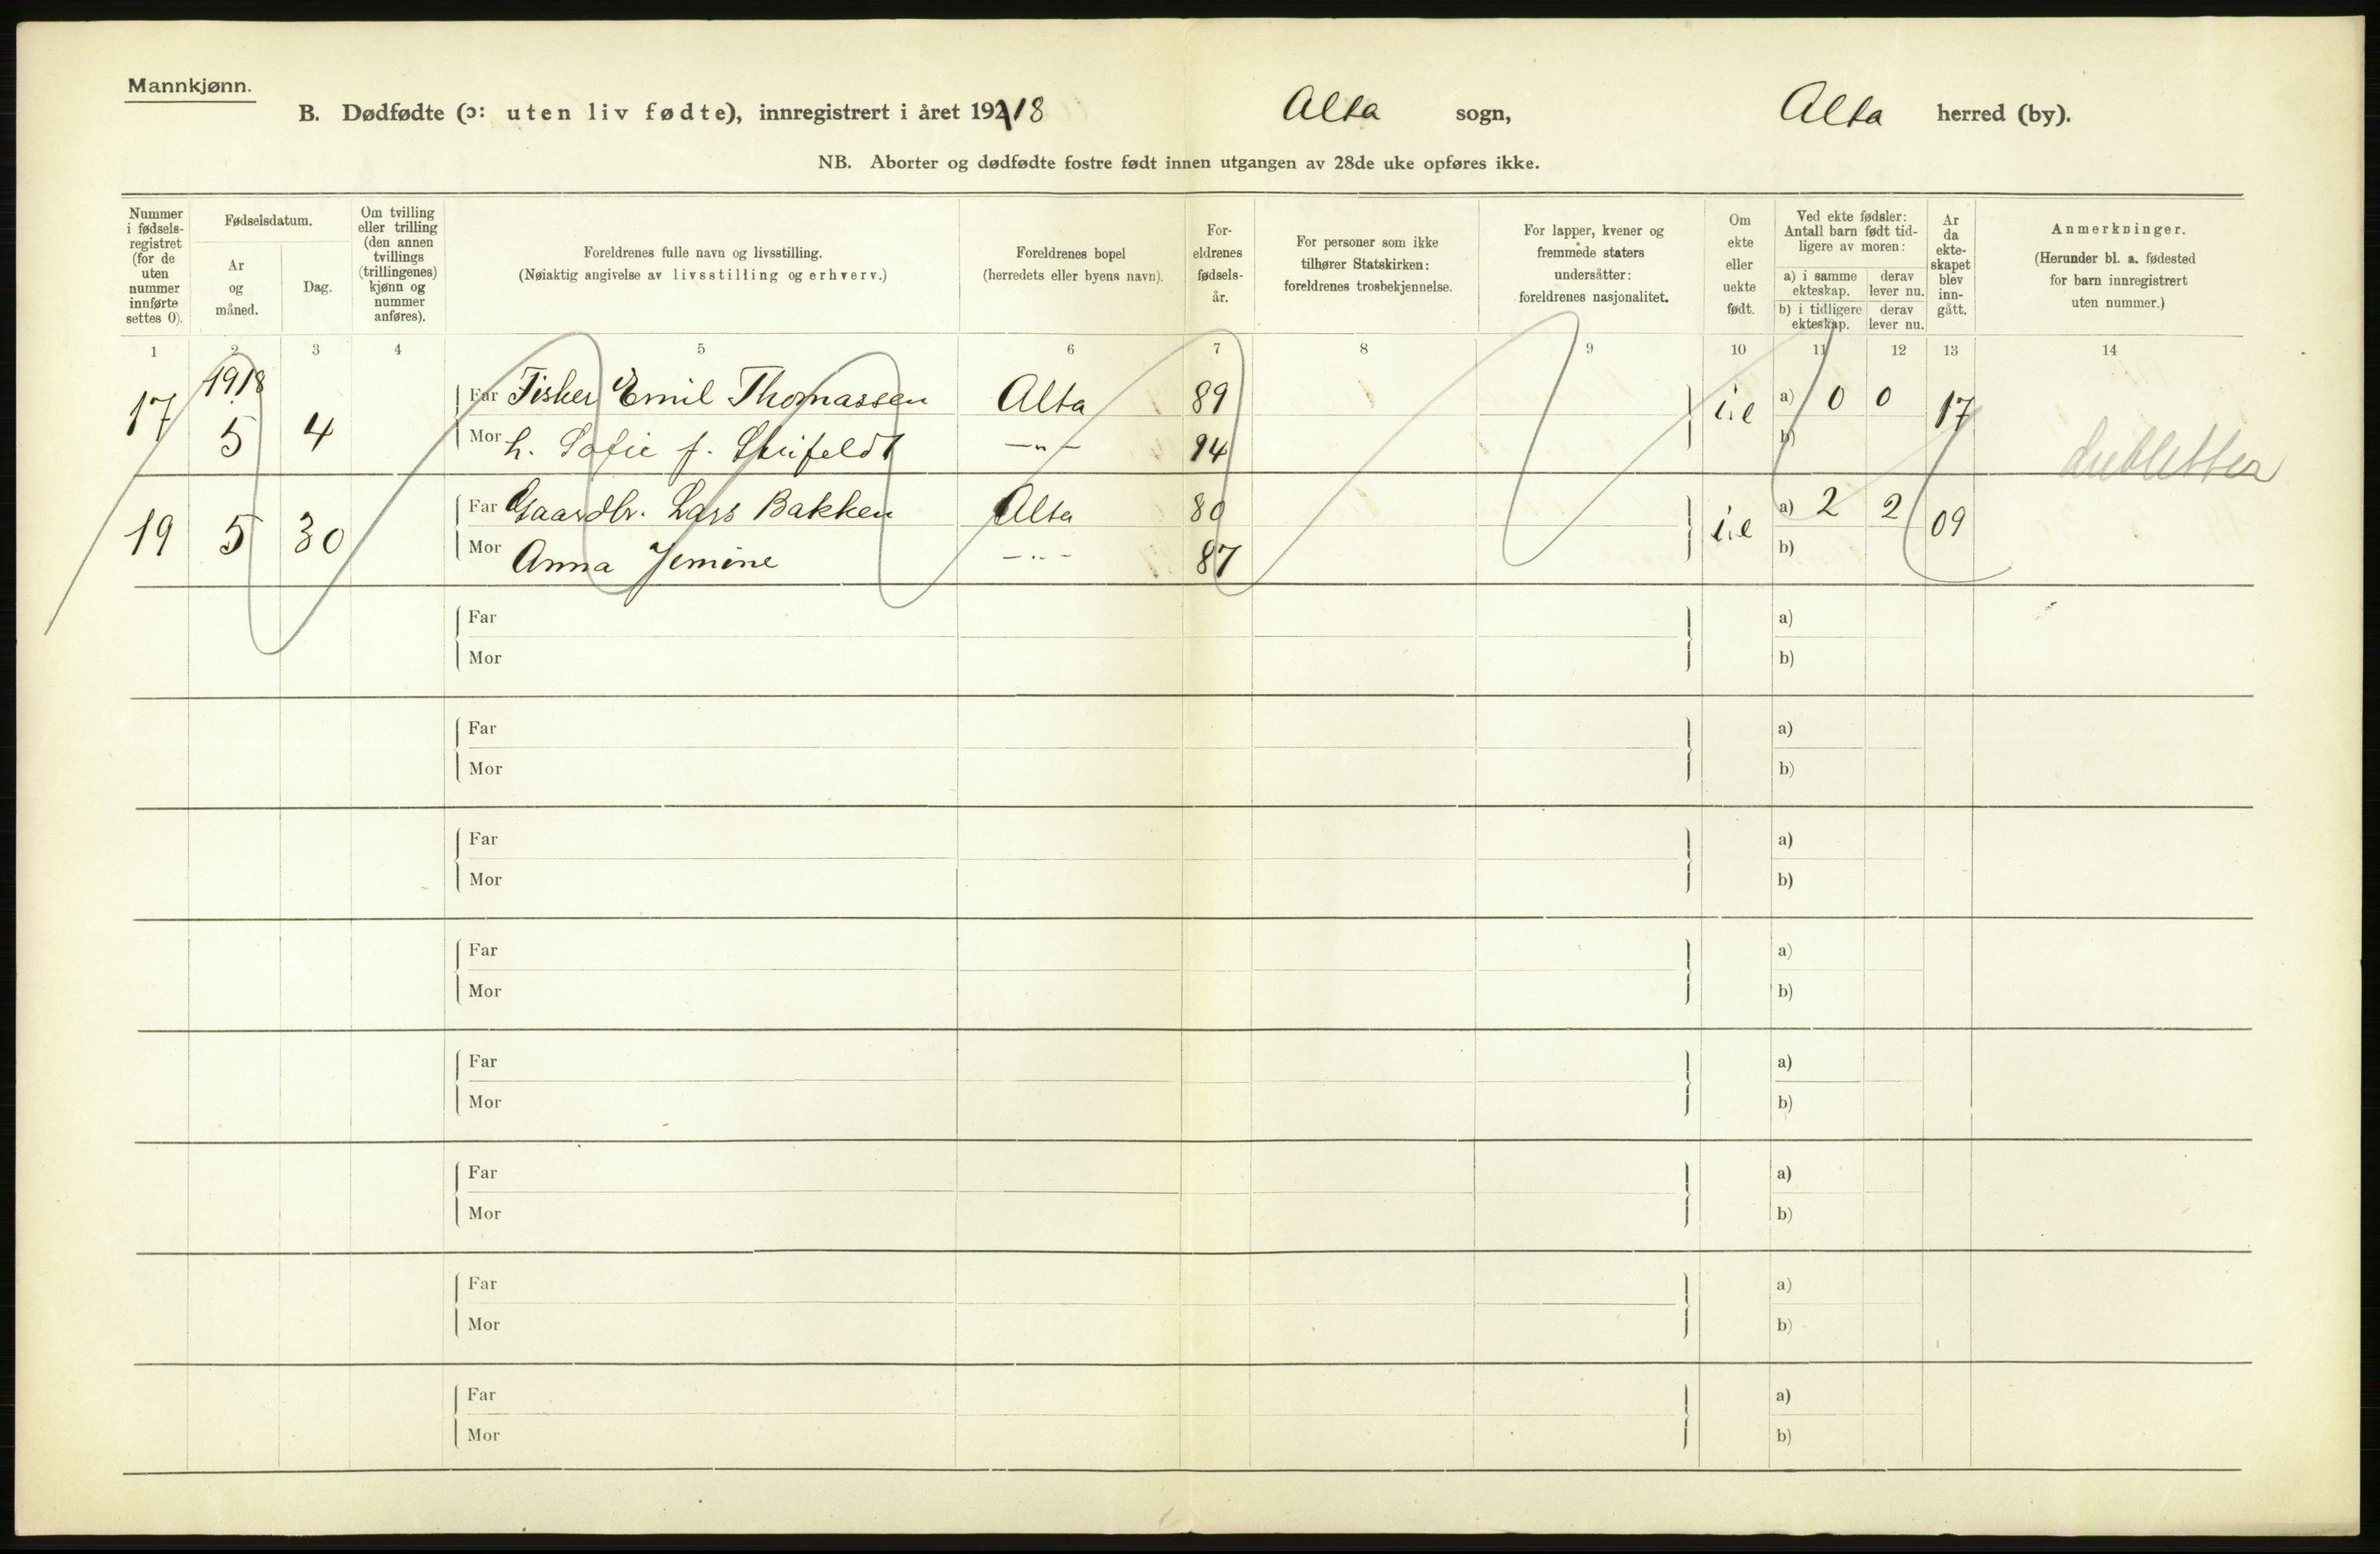 Mannkjønn.
B. Dødfødte (ɔ: uten liv fødte), innregistrert i året 19218 Alta sogn, Alta herred (by).
NB. Aborter og dødfødte fostre født innen utgangen av 28de uke opføres ikke.
Nummer i fødsels-registret (for de uten nummer innførte settes 0).
Fødselsdatum.
Ar og måned.
Dag.
Om tvilling eller trilling (den annen tvillings (trillingenes) kjønn og nummer anføres).
Foreldrenes fulle navn og livsstilling.
(Nøiaktig angivelse av livsstilling og erhverv.)
Foreldrenes bopel
(herredets eller byens navn).
For-eldrenes fødsels-år.
For personer som ikke tilhører Statskirken: foreldrenes trosbekjennelse.
For lapper, kvener og fremmede staters undersåtter: foreldrenes nasjonalitet.
Om ekte eller uekte født.
Ved ekte fødsler: Antall barn født tid-ligere av moren:
a) i samme ekteskap. derav lever nu.
b) i tidligere ekteskap. derav lever nu.
Ar da ekte-skapet blev inn-gått.
Anmerkninger.
(Herunder bl. a. fødested for barn innregistrert uten nummer.)
1 2 3 4 5 6 7 8 9 10 11 12 13 14
1918
17 5 4 Far Fisker Emil Thomassen Alta 89 i.e a) 0 0 17
Mor h. Sofie f. –"– 94 b)
dubletter
19 5 30 Far Gaardbr. Lars Bakken Alta 80 i.e a) 2 2 09
Mor Anna Jemine –"– 87 b)
Far a)
Mor b)
Far a)
Mor b)
Far a)
Mor b)
Far a)
Mor b)
Far a)
Mor b)
Far a)
Mor b)
Far a)
Mor b)
Far a)
Mor b)